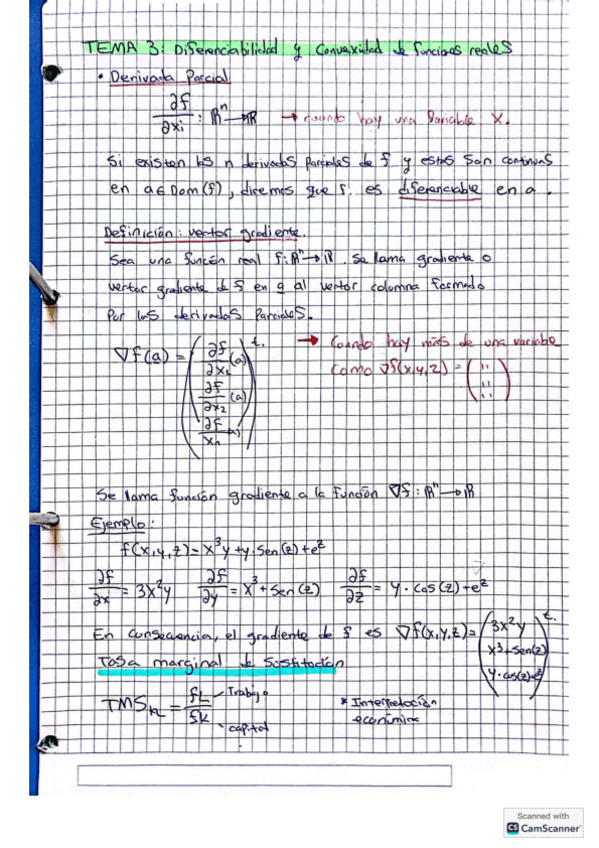 TEMA 3: Diferenciabilidad y Convexidad de funciones reales
• Derivada Parcial
∂f/∂xi : ℝⁿ → ℝ → cuando hay una variable X.
Si existen las n derivadas parciales de f y estas son continuas
en a ∈ Dom(f), diremos que f. es diferenciable en a.
Definición: vector gradiente.
Sea una función real f: ℝⁿ → ℝ. Se lama gradiente o
vector gradiente de f en a al vector columna formado
Por las derivadas Parciales.
∇f(a) = (∂f/∂x₁(a) ∂f/∂x₂(a) ∂f/xₙ(a))ᵗ. → Cuando hay más de una variable
como ∇f(x,y,z) = ( '' '' '' )
Se lama función gradiente a la función ∇f: ℝⁿ → ℝ
Ejemplo:
f(x,y,z) = x³y + y·Sen(z) + eᶻ
∂f/∂x = 3x²y ∂f/∂y = x³ + Sen(z) ∂f/∂z = y·Cos(z) + eᶻ
En consecuencia, el gradiente de f es ∇f(x,y,z) = (3x²y x³+Sen(z) y·cos(z)+eᶻ)ᵗ.
Tasa marginal de Sustitución
TMS_KL = fL/fK Trabajo capital * Interpretación
económica
Scanned with
CS CamScanner